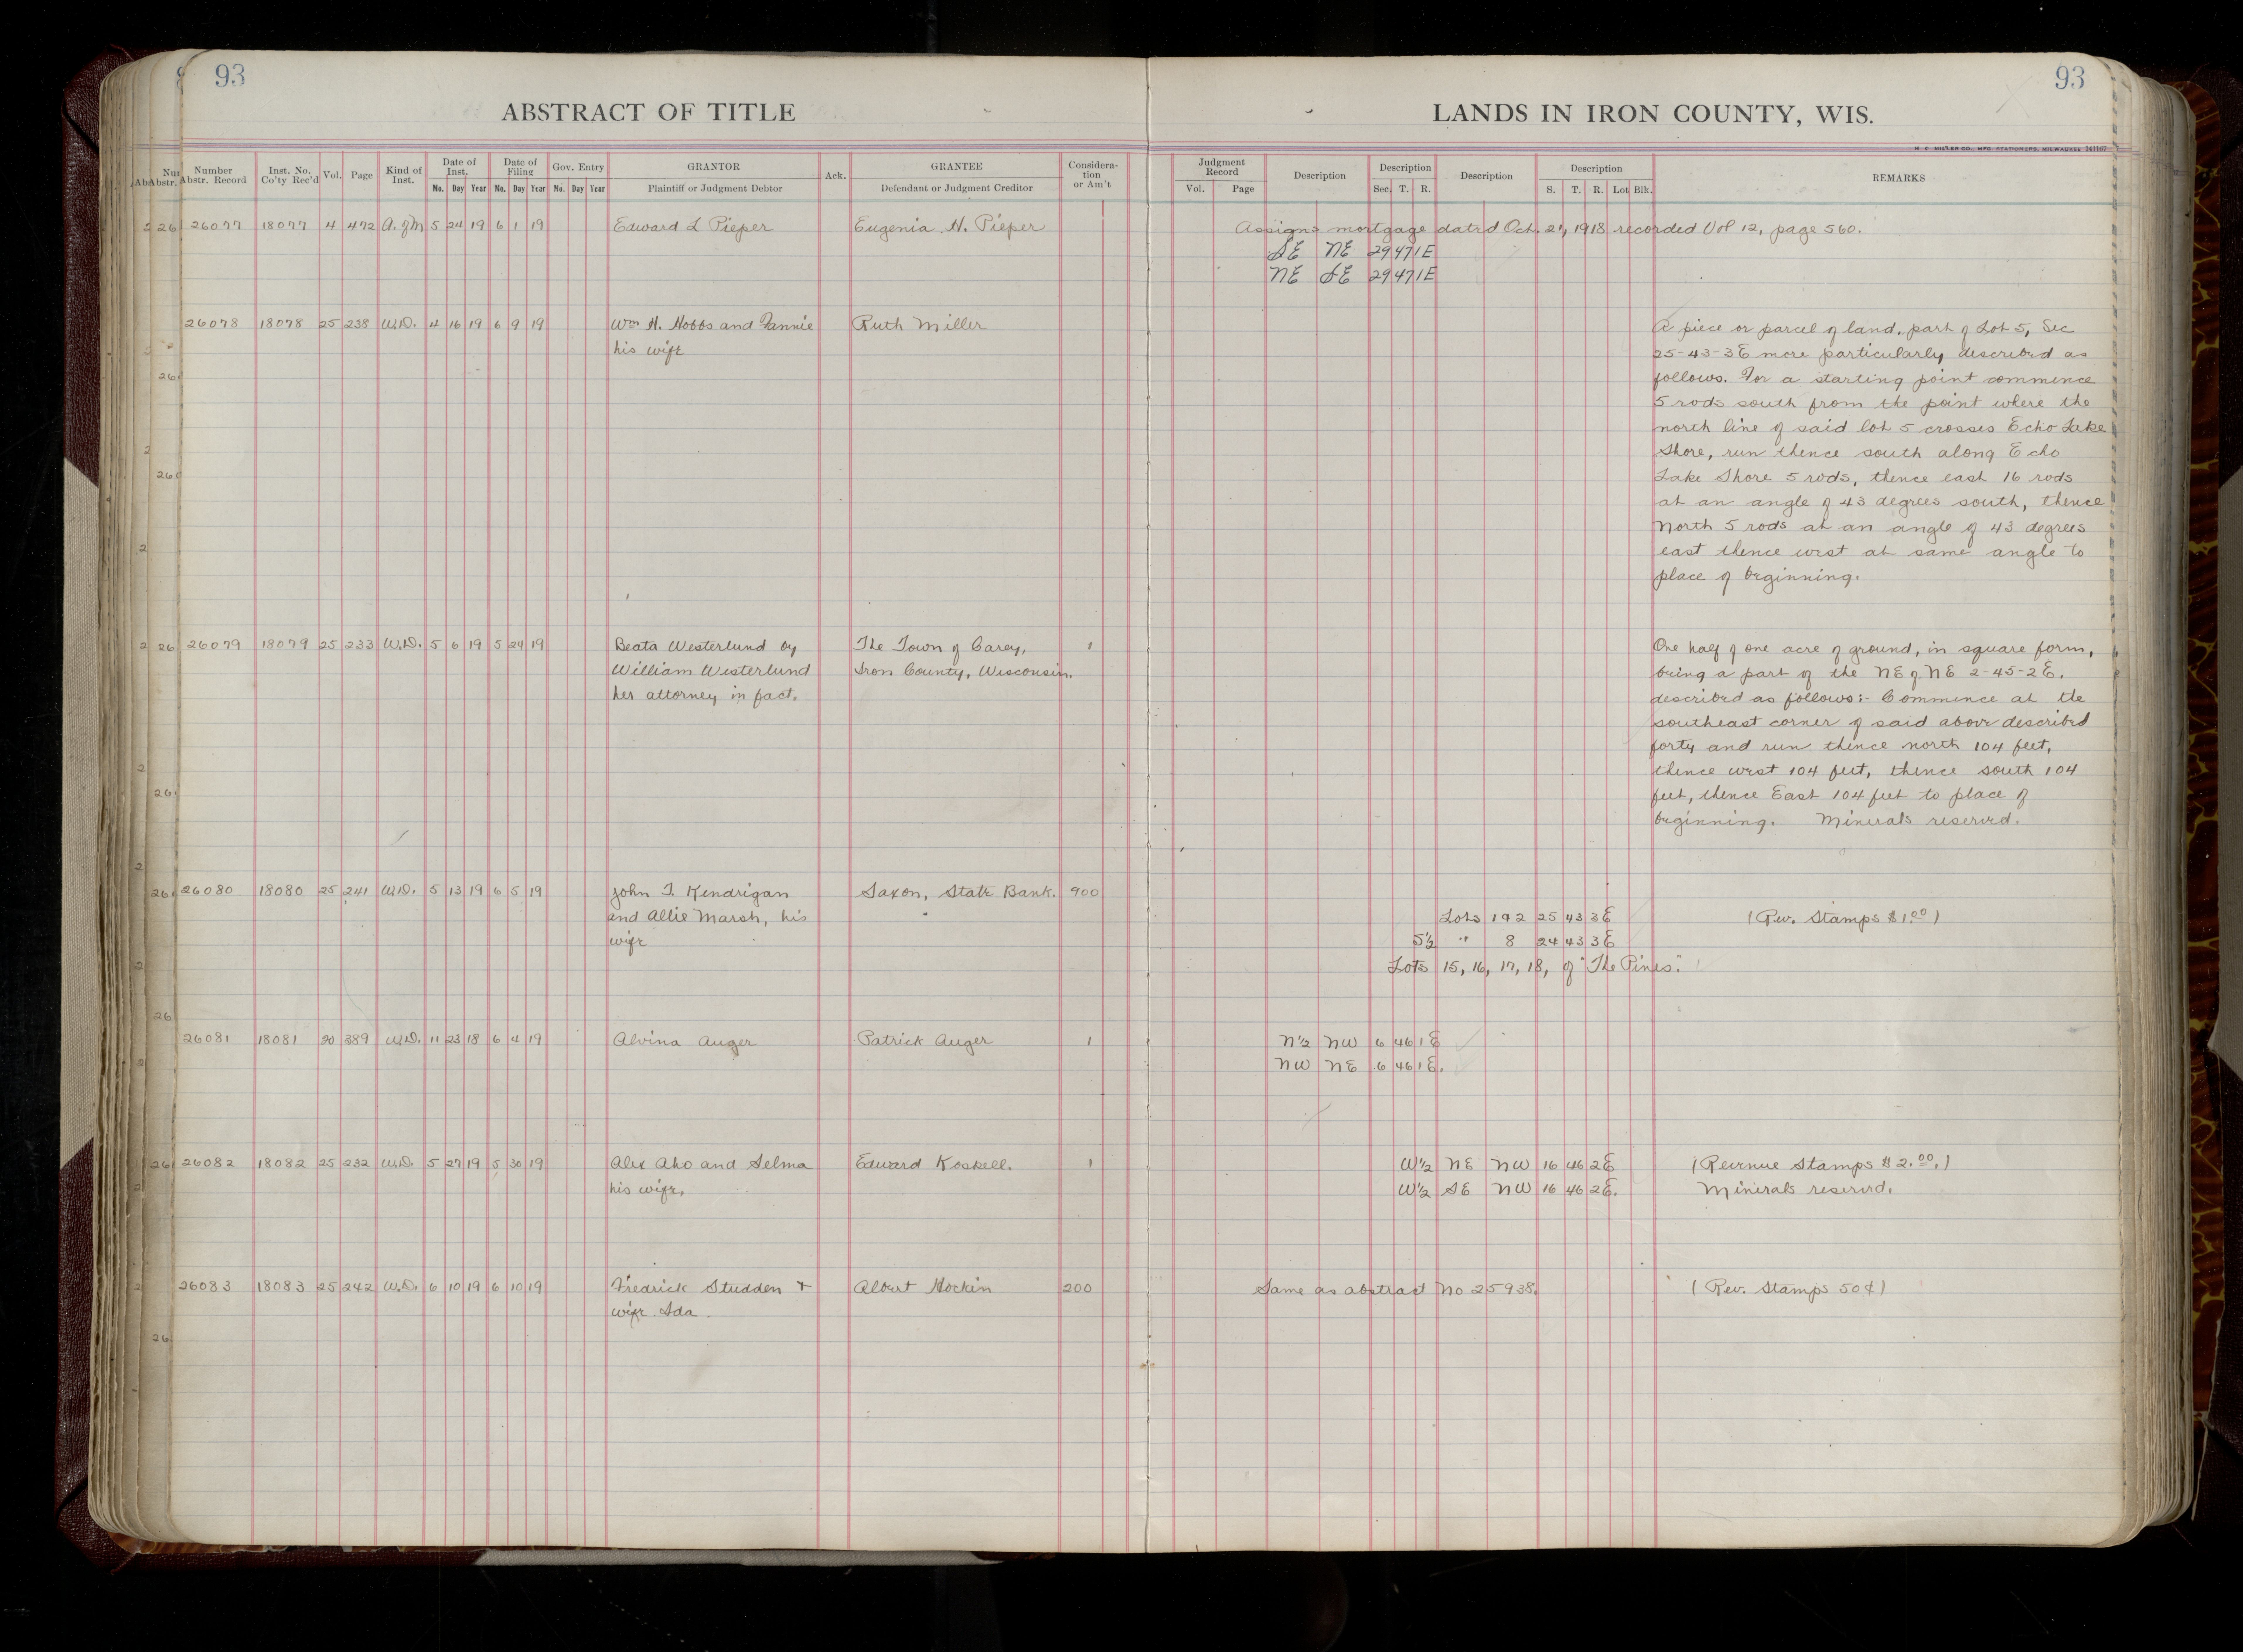 93
93
ABSTRACT OF TITLE
LANDS IN IRON COUNTY, WIS.
H. C. MILLER CO., MFG. STATIONERS, MILWAUKEE
Number Abstr. Record | Inst. No. Co'ty Rec'd | Vol. | Page | Kind of Inst. | Date of Inst. No. Day Year | Date of Filing No. Day Year | Gov. Entry No. Day Year | GRANTOR Plaintiff or Judgment Debtor | Ack. | GRANTEE Defendant or Judgment Creditor | Considera-tion or Am't | Judgment Record Vol. Page | Description | Description Sec. T. R. | Description | Description S. T. R. Lot Blk. | REMARKS
26077 18077 4 472 A. of M 5 24 19 6 1 19 Edward L Pieper Eugenia H. Pieper Assigns mortgage datrd Oct. 21, 1918 recorded Vol 12, page 560.
SE NE 29 47 1E
NE SE 29 47 1E
26078 18078 25 238 W.D. 4 16 19 6 9 19 Wm H. Hobbs and Fannie Ruth Miller A piece or parcel of land, part of Lot 5, Sec
his wife 25-43-3E more particularly described as
follows. For a starting point commence
5 rods south from the point where the
north line of said lot 5 crosses Echo Lake
Shore, run thence south along Echo
Lake Shore 5 rods, thence east 16 rods
at an angle of 43 degrees south, thence
North 5 rods at an angle of 43 degrees
east thence west at same angle to
place of beginning.
26079 18079 25 233 W.D. 5 6 19 5 24 19 Beata Westerlund by The Town of Carey, 1 One half of one acre of ground, in square form,
William Westerlund Iron County, Wisconsin. being a part of the NE of NE 2-45-2E.
her attorney in fact. described as follows:- Commence at the
southeast corner of said above described
forty and run thence north 104 feet,
thence west 104 feet, thence south 104
feet, thence East 104 feet to place of
beginning. Minerals reserved.
26080 18080 25 241 W.D. 5 13 19 6 5 19 John T. Kendrigan Saxon, State Bank. 900
and Allie Marsh, his Lots 1 9 2 25 43 3E (Rev. Stamps $1.00)
wife S½ " 8 24 43 3E
Lots 15, 16, 17, 18, of "The Pines."
26081 18081 20 389 W.D. 11 23 18 6 4 19 Alvina Auger Patrick Auger 1 N½ NW 6 46 1E
NW NE 6 46 1E.
26082 18082 25 232 W.D. 5 27 19 5 30 19 Alex Aho and Selma Edward Koskell. 1 W½ NE NW 16 46 2E (Revenue Stamps $2.00.)
his wife, W½ SE NW 16 46 2E. Minerals reserved.
26083 18083 25 242 W.D. 6 10 19 6 10 19 Fredrick Studden + Albert Hockin 200 Same as abstract No 25938. (Rev. Stamps 50¢)
wife Ida.